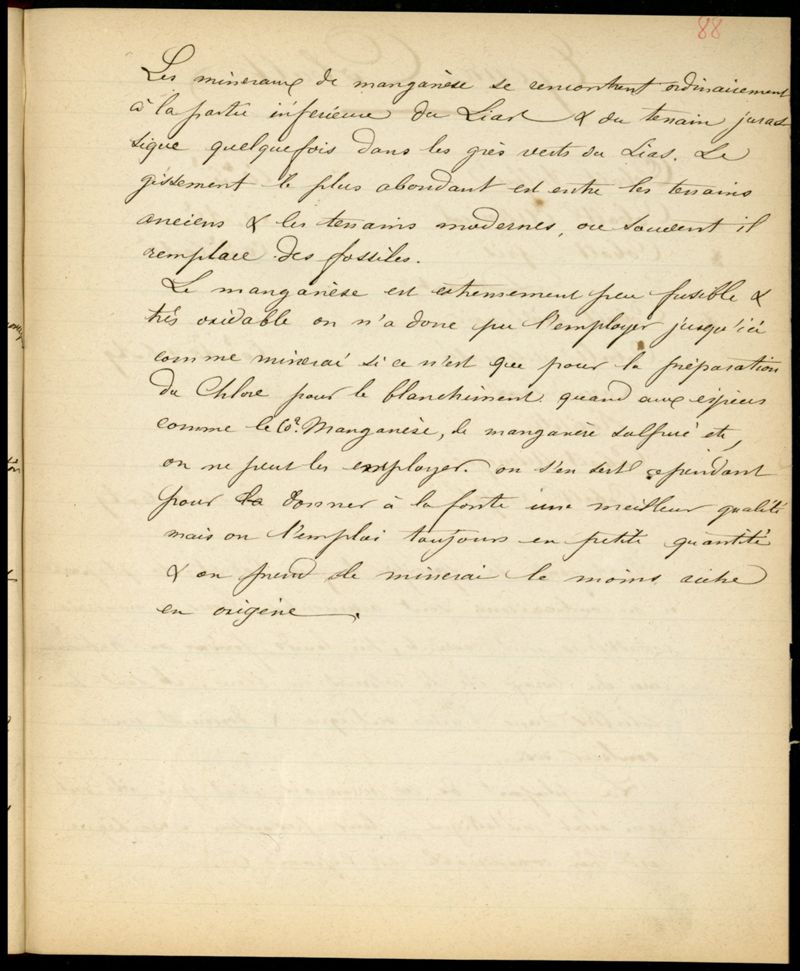 88
Les mineraux de manganèse se rencontrent ordinairement
à la partie inférieure du Lias & du terrain juras
sique quelquefois dans les grès verts du Lias. Le
gissement le plus abondant est entre les terrains
anciens & les terrains modernes, ou souvent il
remplace des fossiles.
Le manganèse est extremement peu fusible &
très oxidable on n'a donc pu l'employer jusqu'ici
comme minerai si ce n'est que pour la préparation
du Chlore pour le blanchiment quand aux espèces
comme le Manganèse, le manganèse sulfuré etc,
on ne peut les employer. on s'en sert cependant
pour la donner à la fonte une meilleur qualité
mais on l'emploi toujours en petite quantité
& on prend le minerai le moins riche
en origène.